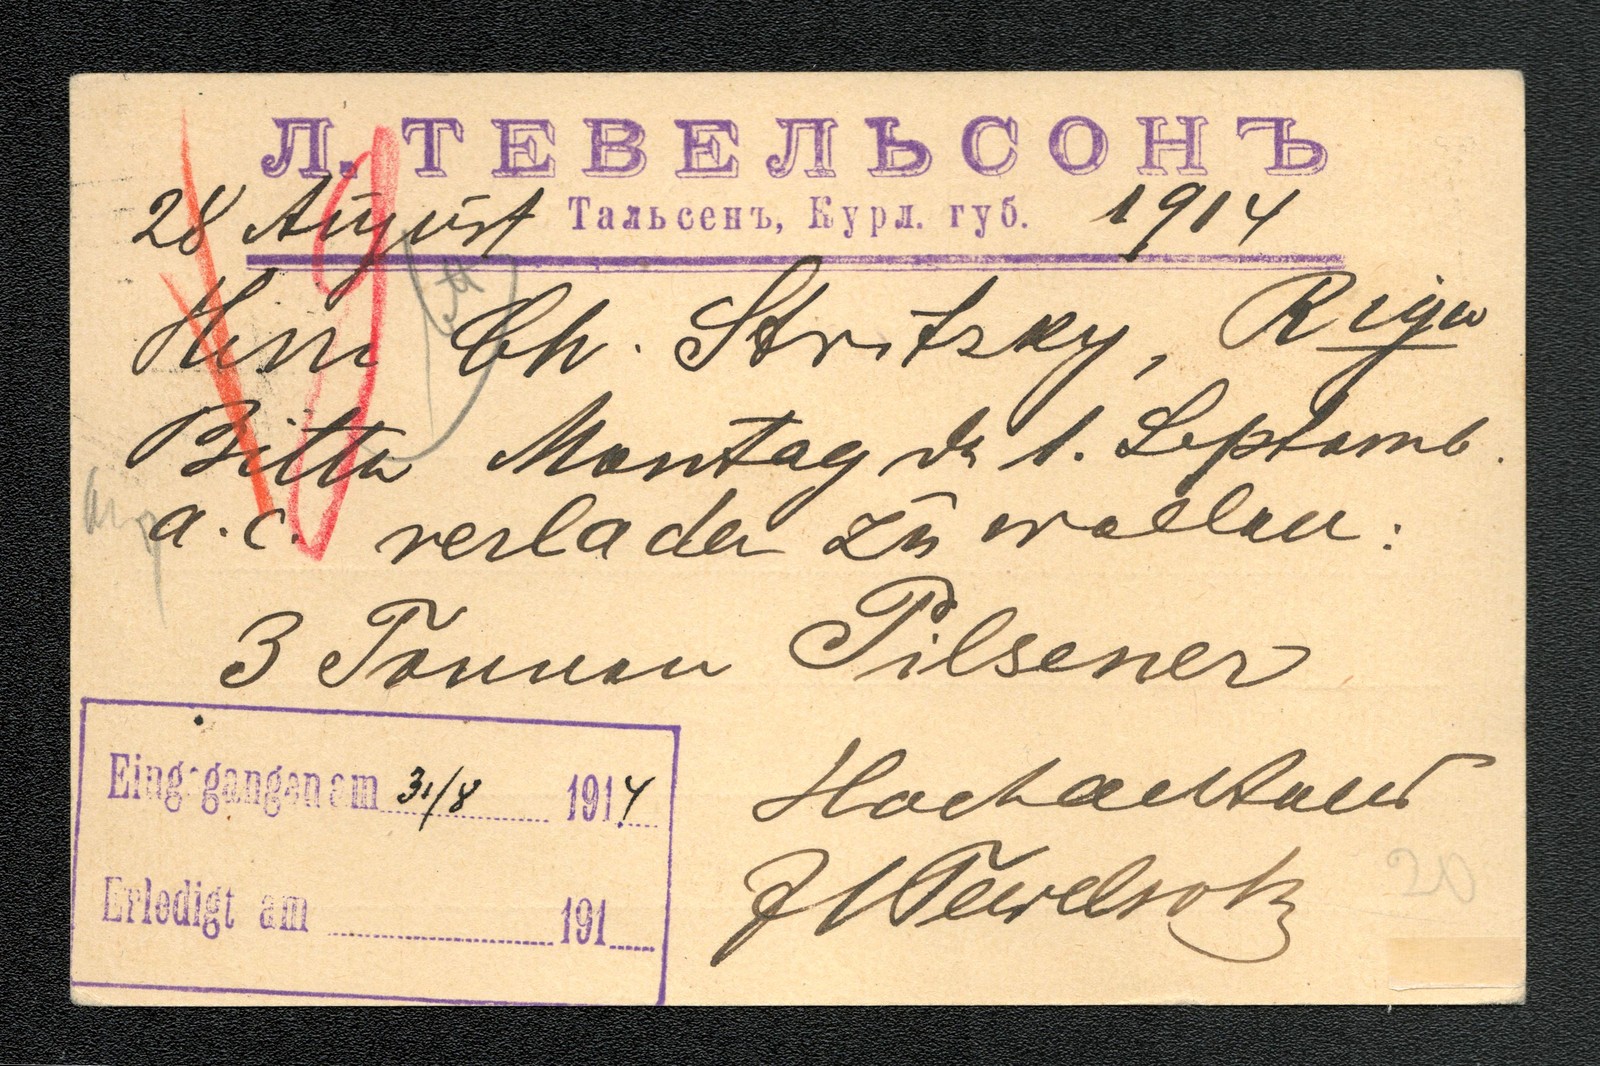 Л. ТЕВЕЛЬСОНЪ
28 August Тальсенъ, Курл. губ. 1914
Herrn Ch. Stritzky, Riga
Bitte Montag d. 1. Septemb.
a. c. verladen zu wollen:
3 Tonnen Pilsener
Hochachtend
Tewelsohn
Eingegangen am 31/8 1914
Erledigt am 191
20